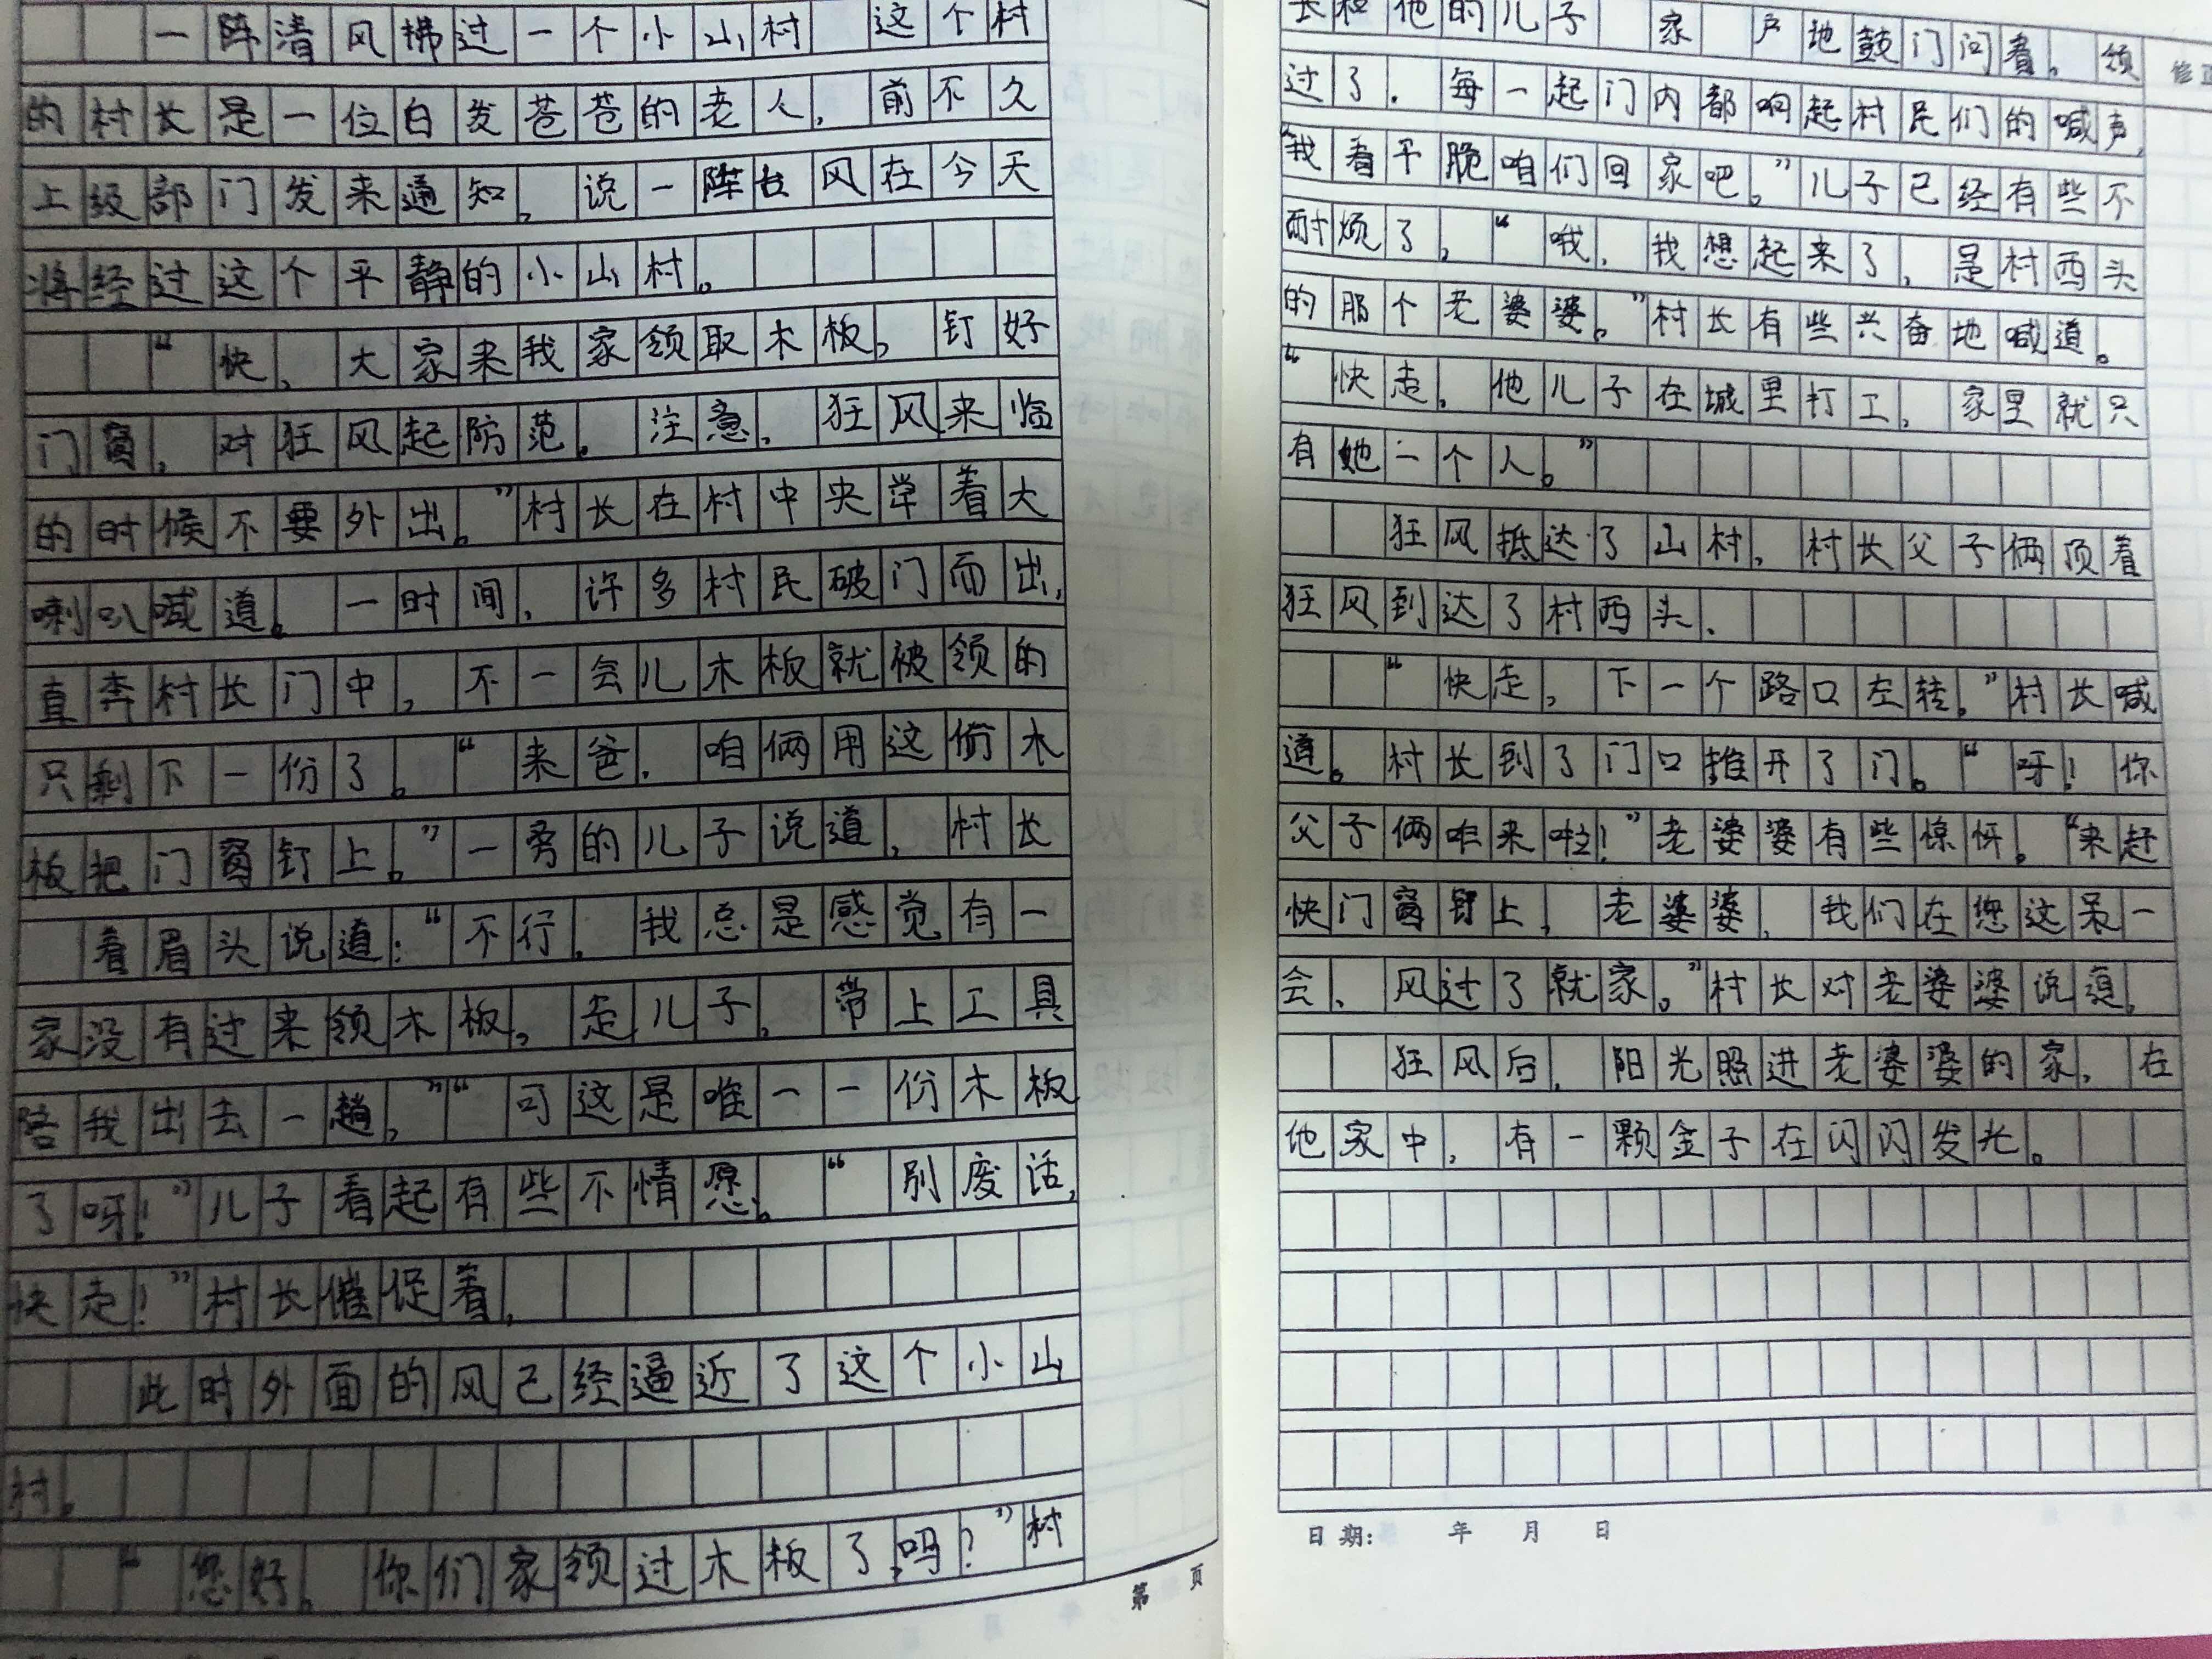 一阵清风拂过一个小山村 这个村
的村长是一位白发苍苍的老人，前不久
上级部门发来通知，说一阵台风在今天
将经过这个平静的小山村。
“快，大家来我家领取木板，钉好
门窗，对狂风起防范。注意，狂风来临
的时候不要外出。”村长在村中央举着大
喇叭喊道。一时间，许多村民破门而出，
直奔村长门中，不一会儿木板就被领的
只剩下一份了。“来爸，咱俩用这份木
板把门窗钉上。”一旁的儿子说道，村长
着眉头说道：“不行，我总是感觉有一
家没有过来领木板，走儿子，带上工具
陪我出去一趟，”“可这是唯一一份木板
了呀！”儿子看起有些不情愿。“别废话，
快走！”村长催促着，
此时外面的风已经逼近了这个小山
村。
“您好，你们家领过木板了吗？”村
长和他的儿子 家 户地鼓门问着。领
过了．每一起门内都响起村民们的喊声，
“我看干脆咱们回家吧。”儿子已经有些不
耐烦了，“哦，我想起来了，是村西头
的那个老婆婆。”村长有些兴奋地喊道。
“快走，他儿子在城里打工，家里就只
有她一个人。”
狂风抵达了山村，村长父子俩顶着
狂风到达了村西头．
“快走，下一个路口左转。”村长喊
道。村长到了门口推开了门。“呀！你
父子俩咋来啦！”老婆婆有些惊讶。“来赶
快门窗钉上，老婆婆，我们在您这呆一
会，风过了就家。”村长对老婆婆说道。
狂风后，阳光照进老婆婆的家，在
他家中，有一颗金子在闪闪发光。
修正
第 页
日期： 年 月 日